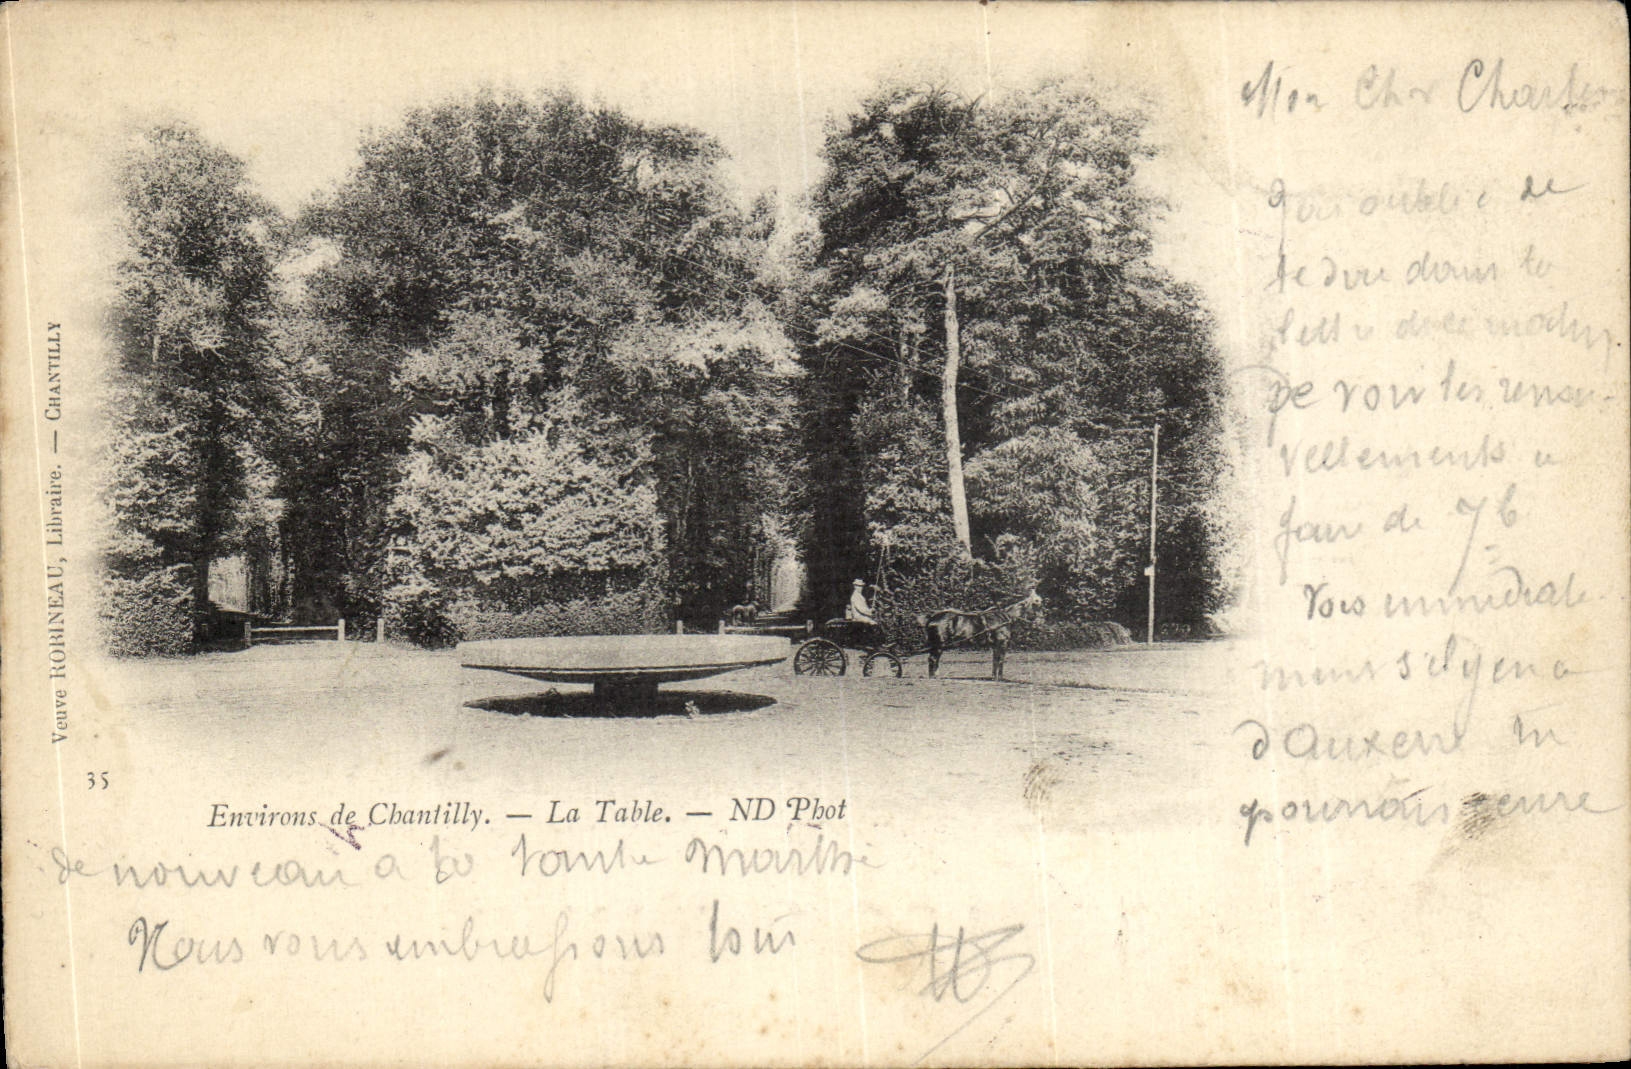 Mon Cher Charles
J'ai oublié de
te dire dans ta
lettre de ce
de voir les renou-
vellements a
faire de 76
Vois immédiate-
ment s'il y en a
d'Auxerre tu
pourrais
de nouveau a ta tante Marthe
Nous vous embrassons tous
35
Environs de Chantilly. — La Table. — ND Phot
Veuve ROBINEAU, Libraire. — CHANTILLY